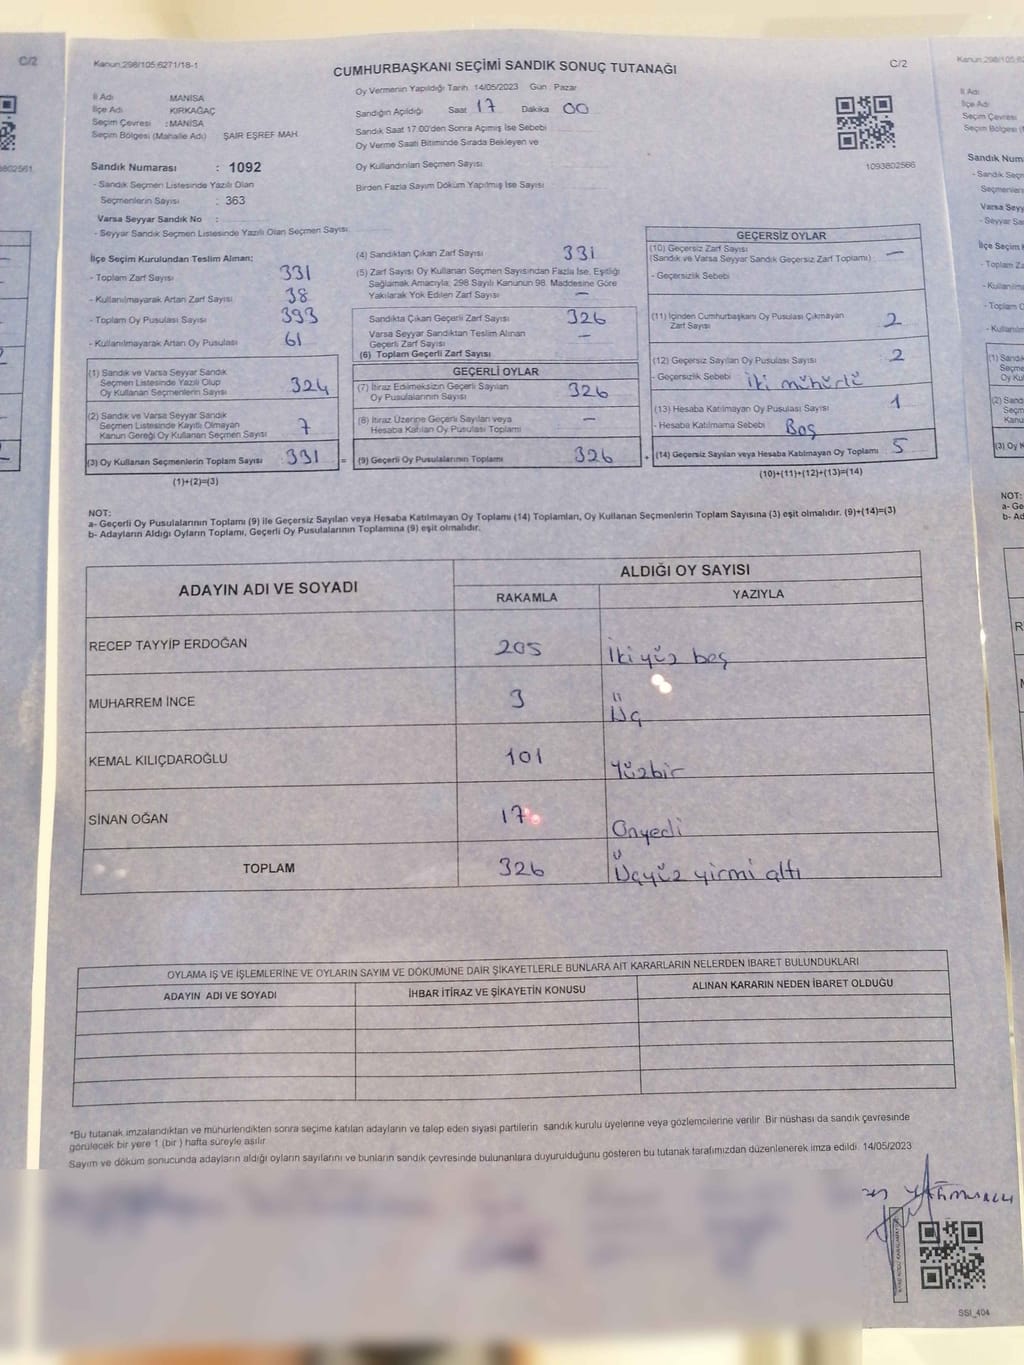 C/2
Kanun:298/105;6271/18-1
CUMHURBAŞKANI SEÇİMİ SANDIK SONUÇ TUTANAĞI
C/2
İl Adı MANİSA
İlçe Adı KIRKAĞAÇ
Seçim Çevresi :MANİSA
Seçim Bölgesi (Mahalle Adı) ŞAİR EŞREF MAH.
Oy Vermenin Yapıldığı Tarih 14/05/2023 Gün : Pazar
Sandığın Açıldığı Saat 17 Dakika 00
Sandık Saat 17:00'den Sonra Açılmış İse Sebebi
Oy Verme Saati Bitiminde Sırada Bekleyen ve
Oy Kullandırılan Seçmen Sayısı
Birden Fazla Sayım Döküm Yapılmış İse Sayısı
1093802566
Sandık Numarası : 1092
- Sandık Seçmen Listesinde Yazılı Olan
Seçmenlerin Sayısı : 363
Varsa Seyyar Sandık No :
- Seyyar Sandık Seçmen Listesinde Yazılı Olan Seçmen Sayısı:
İlçe Seçim Kurulundan Teslim Alınan:
- Toplam Zarf Sayısı 331
- Kullanılmayarak Artan Zarf Sayısı 38
- Toplam Oy Pusulası Sayısı 393
- Kullanılmayarak Artan Oy Pusulası 61
(1) Sandık ve Varsa Seyyar Sandık
Seçmen Listesinde Yazılı Olup
Oy Kullanan Seçmenlerin Sayısı 324
(2) Sandık ve Varsa Seyyar Sandık
Seçmen Listesinde Kayıtlı Olmayan
Kanun Gereği Oy Kullanan Seçmen Sayısı 7
(3) Oy Kullanan Seçmenlerin Toplam Sayısı 331 =
(1)+(2)=(3)
(4) Sandıktan Çıkan Zarf Sayısı 331
(5) Zarf Sayısı Oy Kullanan Seçmen Sayısından Fazla İse, Eşitliği
Sağlamak Amacıyla; 298 Sayılı Kanunun 98. Maddesine Göre
Yakılarak Yok Edilen Zarf Sayısı –
Sandıkta Çıkan Geçerli Zarf Sayısı 326
Varsa Seyyar Sandıktan Teslim Alınan
Geçerli Zarf Sayısı –
(6) Toplam Geçerli Zarf Sayısı
GEÇERLİ OYLAR
(7) İtiraz Edilmeksizin Geçerli Sayılan
Oy Pusulalarının Sayısı 326
(8) İtiraz Üzerine Geçerli Sayılan veya
Hesaba Katılan Oy Pusulası Toplamı –
(9) Geçerli Oy Pusulalarının Toplamı 326 +
GEÇERSİZ OYLAR
(10) Geçersiz Zarf Sayısı
(Sandık ve Varsa Seyyar Sandık Geçersiz Zarf Toplamı) –
- Geçersizlik Sebebi
(11) İçinden Cumhurbaşkanı Oy Pusulası Çıkmayan
Zarf Sayısı 2
(12) Geçersiz Sayılan Oy Pusulası Sayısı 2
- Geçersizlik Sebebi İki mühürlü
(13) Hesaba Katılmayan Oy Pusulası Sayısı 1
- Hesaba Katılmama Sebebi Boş
(14) Geçersiz Sayılan veya Hesaba Katılmayan Oy Toplamı 5
(10)+(11)+(12)+(13)=(14)
NOT:
a- Geçerli Oy Pusulalarının Toplamı (9) ile Geçersiz Sayılan veya Hesaba Katılmayan Oy Toplamı (14) Toplamları, Oy Kullanan Seçmenlerin Toplam Sayısına (3) eşit olmalıdır. (9)+(14)=(3)
b- Adayların Aldığı Oyların Toplamı, Geçerli Oy Pusulalarının Toplamına (9) eşit olmalıdır.
ADAYIN ADI VE SOYADI ALDIĞI OY SAYISI
RAKAMLA YAZIYLA
RECEP TAYYİP ERDOĞAN 205 İki yüz beş
MUHARREM İNCE 3 Üç
KEMAL KILIÇDAROĞLU 101 Yüzbir
SİNAN OĞAN 17 Onyedi
TOPLAM 326 Üçyüz yirmi altı
OYLAMA İŞ VE İŞLEMLERİNE VE OYLARIN SAYIM VE DÖKÜMÜNE DAİR ŞİKAYETLERLE BUNLARA AİT KARARLARIN NELERDEN İBARET BULUNDUKLARI
ADAYIN ADI VE SOYADI İHBAR İTİRAZ VE ŞİKAYETİN KONUSU ALINAN KARARIN NEDEN İBARET OLDUĞU
*Bu tutanak imzalandıktan ve mühürlendikten sonra seçime katılan adayların ve talep eden siyasi partilerin sandık kurulu üyelerine veya gözlemcilerine verilir. Bir nüshası da sandık çevresinde
görülecek bir yere 1 (bir ) hafta süreyle asılır.
Sayım ve döküm sonucunda adayların aldığı oyların sayılarını ve bunların sandık çevresinde bulunanlara duyurulduğunu gösteren bu tutanak tarafımızdan düzenlenerek imza edildi. 14/05/2023
SSİ_404